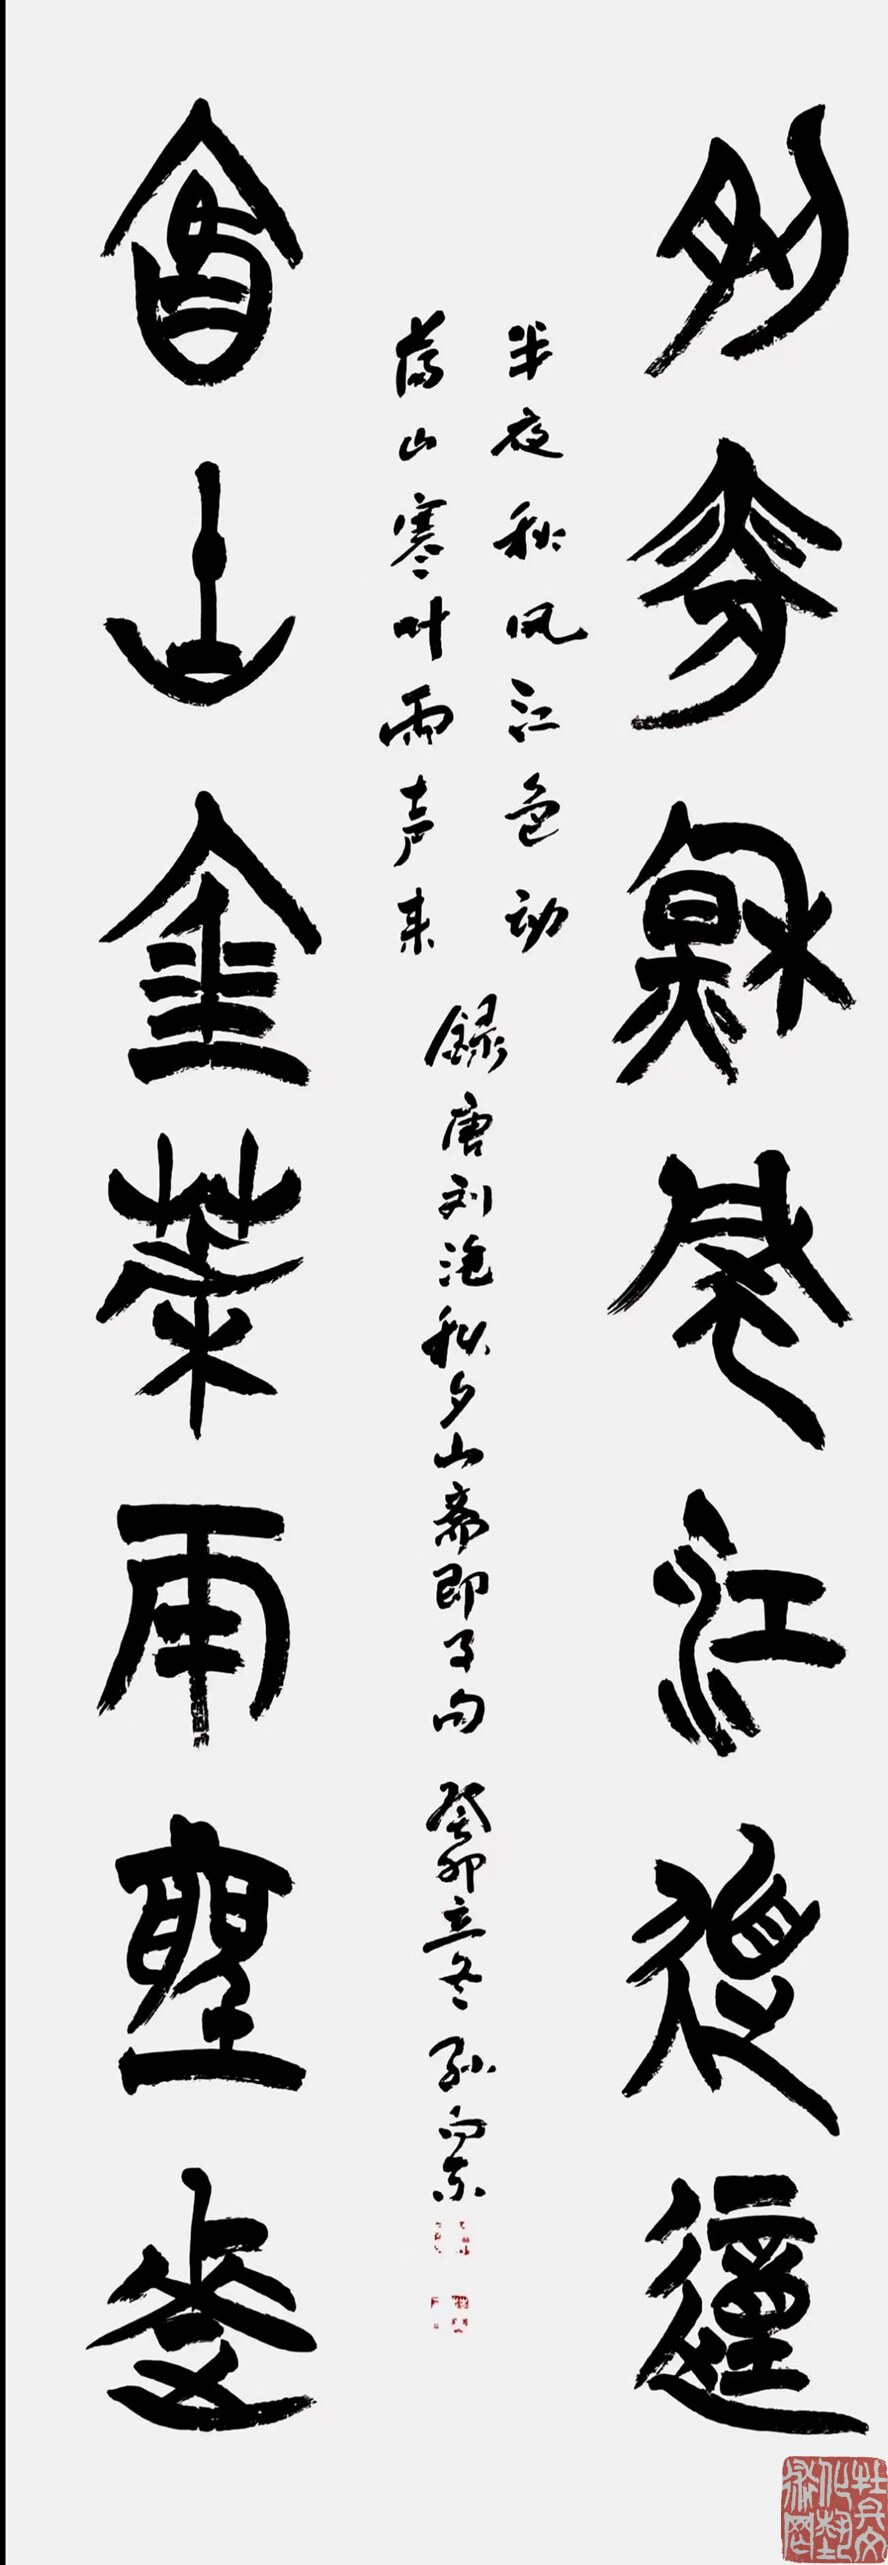 半夜秋风江色动
满山寒叶雨声来
半夜秋风江色动
满山寒叶雨声来
録唐刘沧秋夕山斋即事句 癸卯立冬 孙